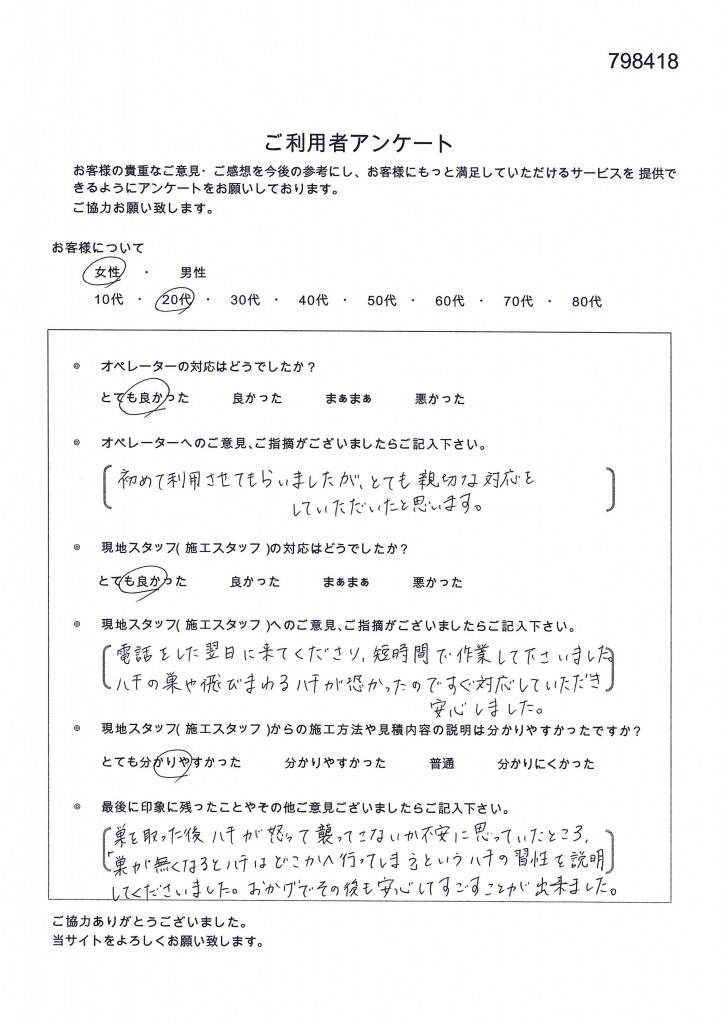 798418
ご利用者アンケート
お客様の貴重なご意見・ご感想を今後の参考にし、お客様にもっと満足していただけるサービスを 提供で
きるようにアンケートをお願いしております。
ご協力お願い致します。
お客様について
女性 ・ 男性
10代 ・ 20代 ・ 30代 ・ 40代 ・ 50代 ・ 60代 ・ 70代 ・ 80代
◎ オペレーターの対応はどうでしたか？
とても良かった 良かった まぁまぁ 悪かった
◎ オペレーターへのご意見、ご指摘がございましたらご記入下さい。
初めて利用させてもらいましたが、とても親切な対応を
していただいたと思います。
◎ 現地スタッフ( 施工スタッフ )の対応はどうでしたか？
とても良かった 良かった まぁまぁ 悪かった
◎ 現地スタッフ( 施工スタッフ )へのご意見、ご指摘がございましたらご記入下さい。
電話をした翌日に来てくださり、短時間で作業して下さいました。
ハチの巣や飛びまわるハチが恐かったのですぐ対応していただき
安心しました。
◎ 現地スタッフ( 施工スタッフ )からの施工方法や見積内容の説明は分かりやすかったですか？
とても分かりやすかった 分かりやすかった 普通 分かりにくかった
◎ 最後に印象に残ったことやその他ご意見ございましたらご記入下さい。
巣を取った後ハチが怒って襲ってこないか不安に思っていたところ、
「巣が無くなるとハチはどこかへ行ってしまう」というハチの習性を説明
してくださいました。おかげでその後も安心してすごすことが出来ました。
ご協力ありがとうございました。
当サイトをよろしくお願い致します。